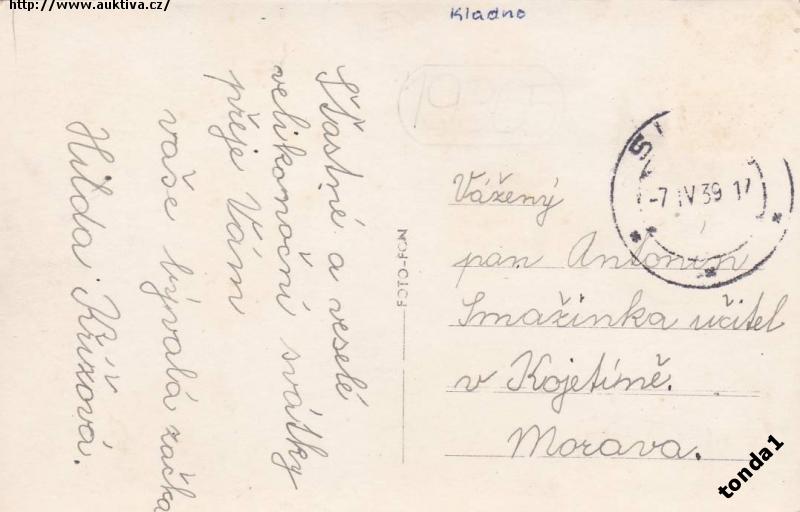 http://www.auktiva.cz/
Kladno
Šťastné a veselé
velikonoční svátky
přeje Vám
vaše bývalá žačka
Hilda Křížová.
FOTO-FON
-7 IV 39 17
Vážený
pan Antonín
Smažinka učitel
v Kojetíně.
Morava.
tonda1